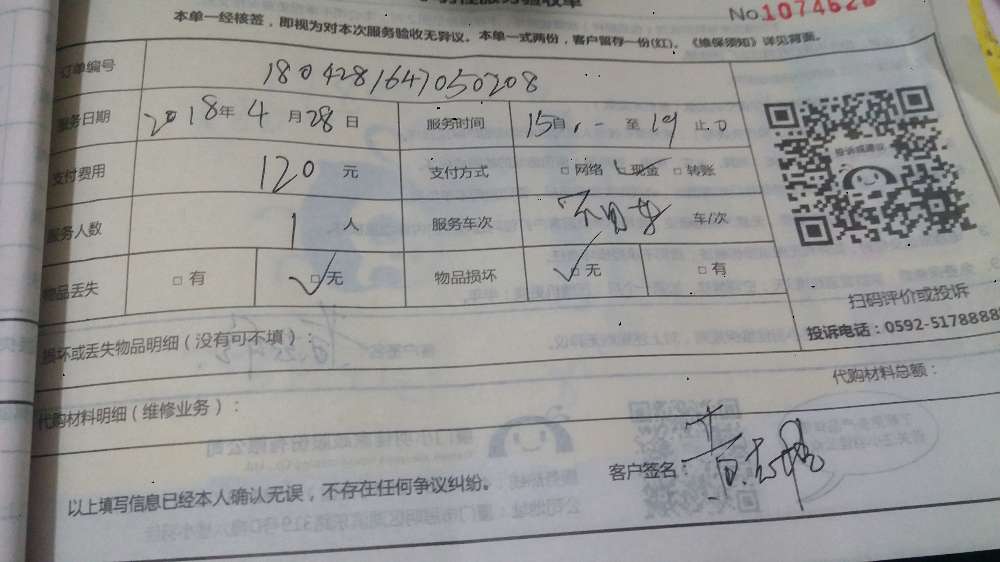 No 1074628
本单一经核签，即视为对本次服务验收无异议。本单一式两份，客户留存一份(红)。《维保须知》详见背面。
订单编号 1804281647050208
服务日期 2018年 4 月 28 日 服务时间 15自 至 19 止
支付费用 120 元 支付方式 □网络 □现金 □转账
服务人数 1 人 服务车次 车/次
物品丢失 □有 □无 物品损坏 □无 □有
投诉或建议
扫码评价或投诉
投诉电话：0592-5178888
损坏或丢失物品明细（没有可不填）：
代购材料总额：
代购材料明细（维修业务）：
客户签名：
以上填写信息已经本人确认无误，不存在任何争议纠纷。